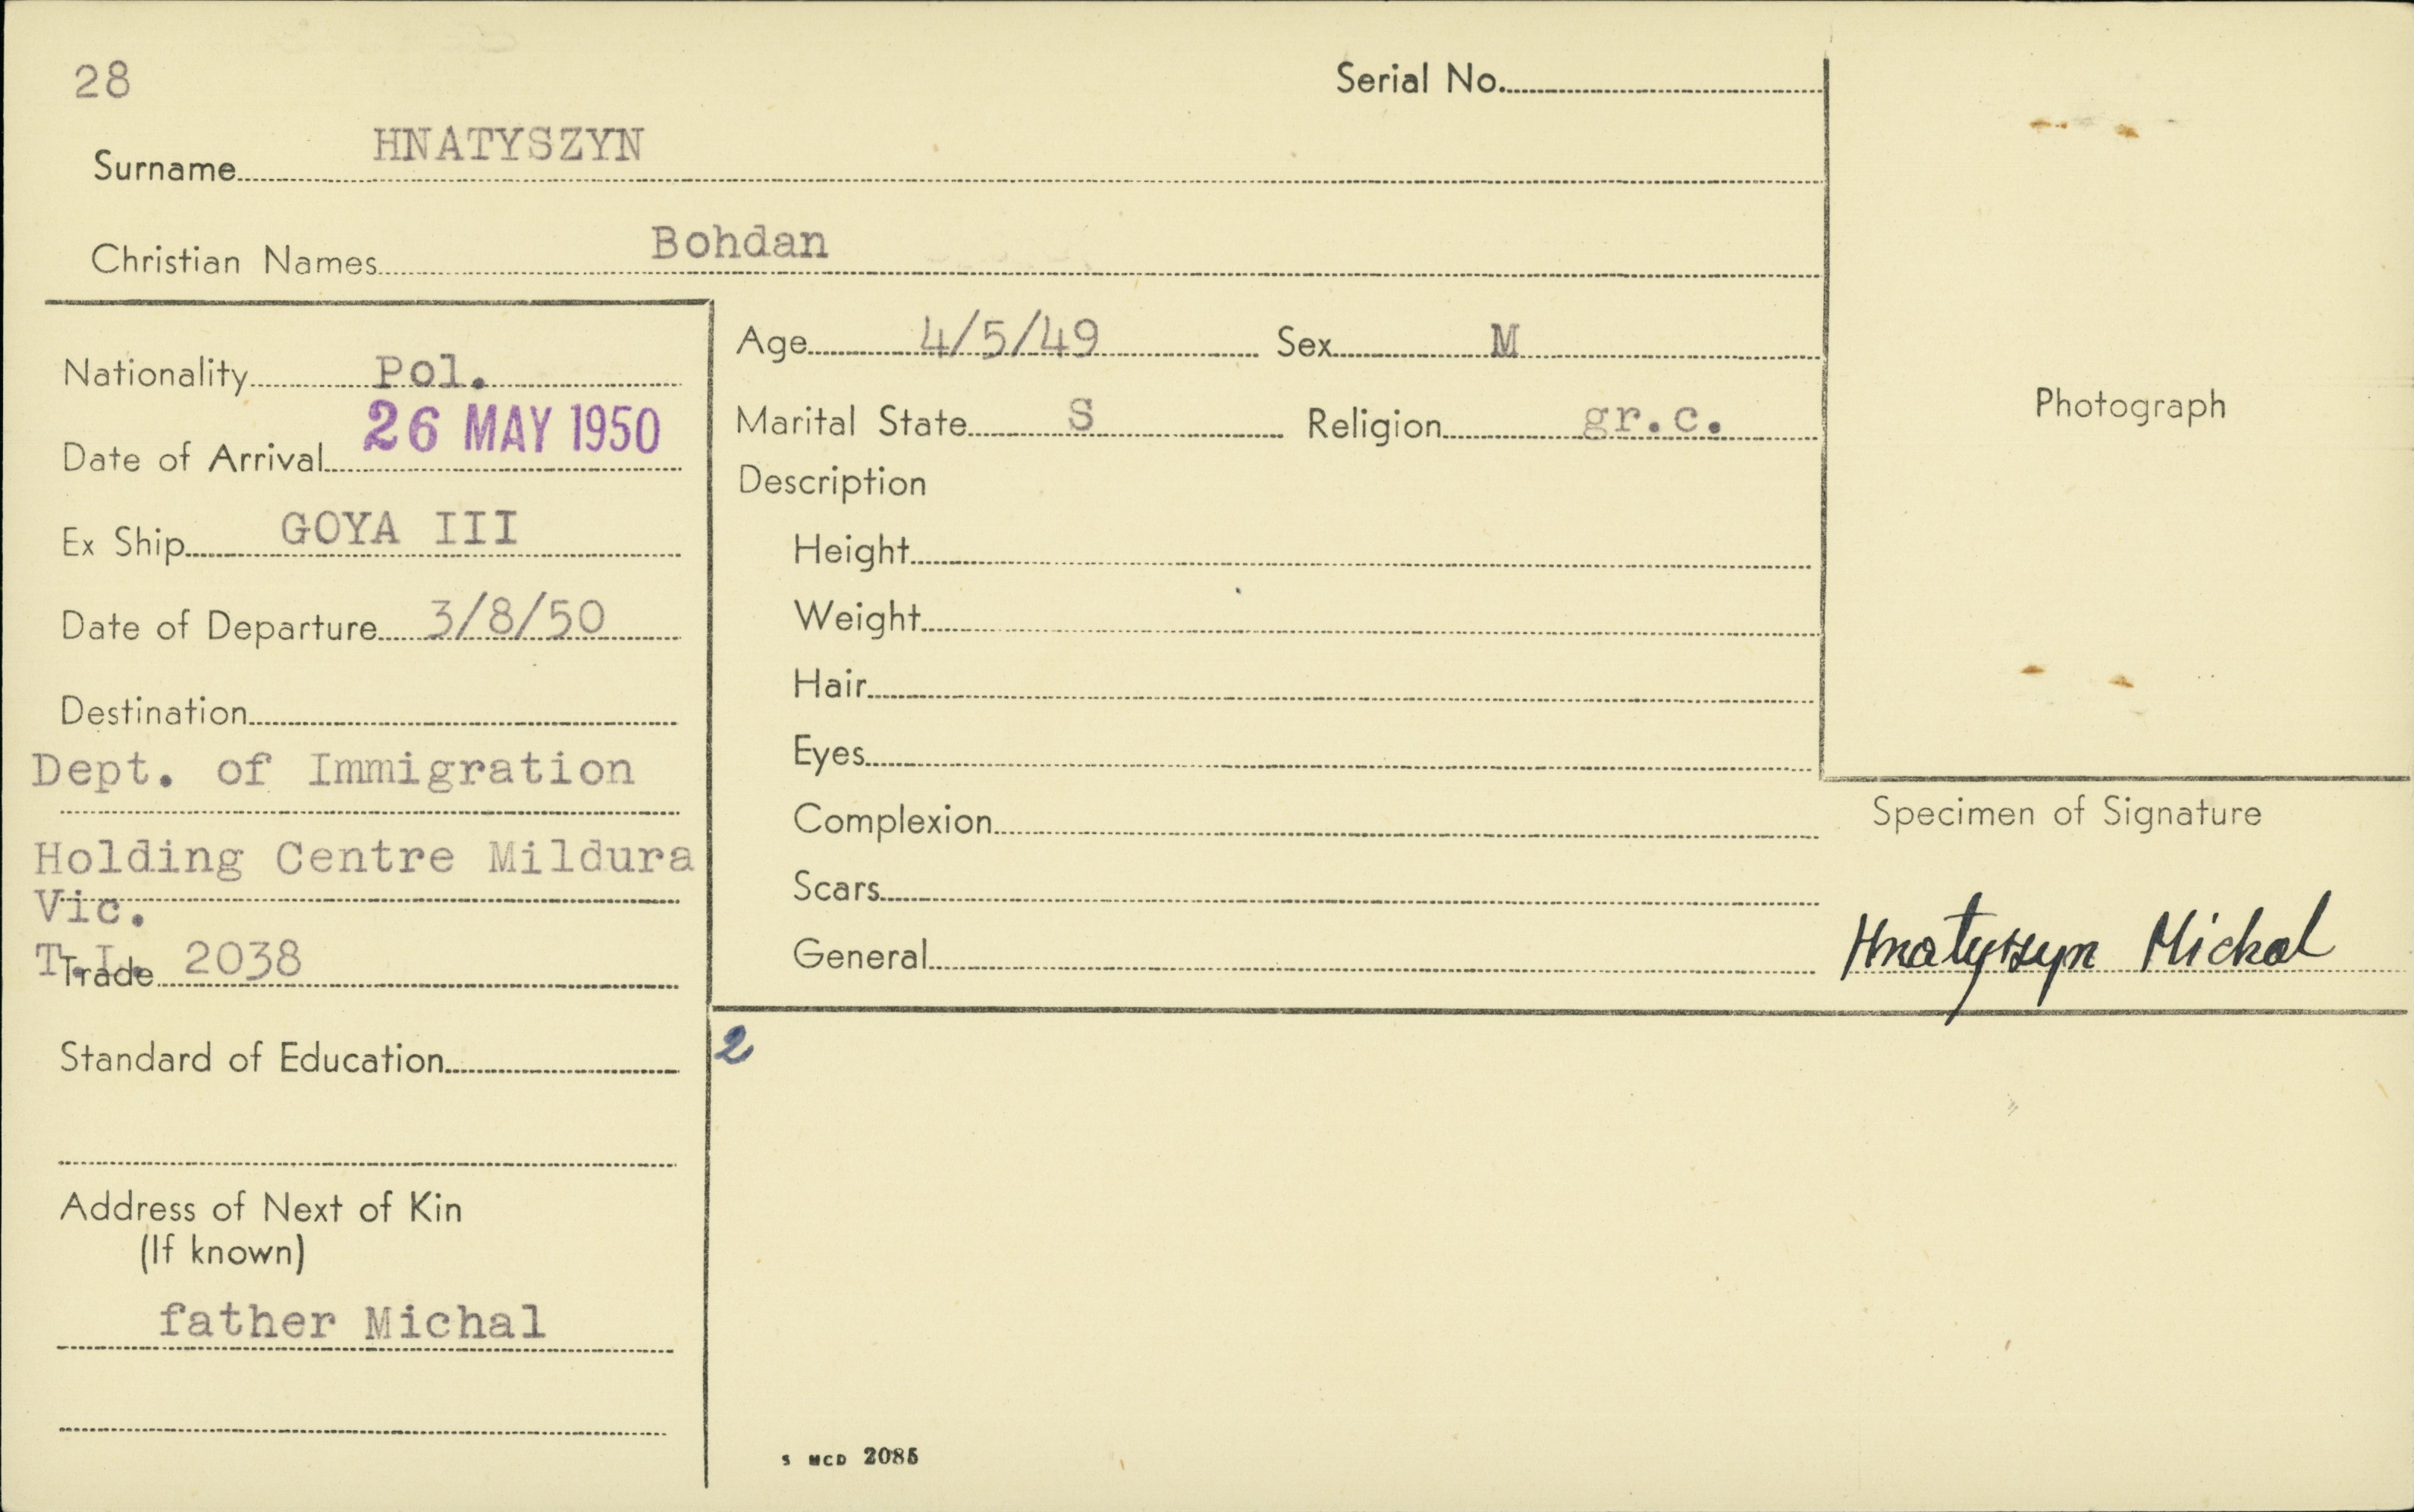 28
Serial No.
Surname HNATYSZYN
Christian Names Bohdan
Nationality Pol.
Date of Arrival 26 MAY 1950
Ex Ship GOYA III
Date of Departure 3/8/50
Destination
Dept. of Immigration
Holding Centre Mildura
Vic.
T.I. 2038
Trade
Standard of Education
Address of Next of Kin
(If known)
father Michal
Age 4/5/49 Sex M
Marital State S Religion gr.c.
Description
Height
Weight
Hair
Eyes
Complexion
Scars
General
2
Photograph
Specimen of Signature
Hnatyszyn Michal
S MCD 2085